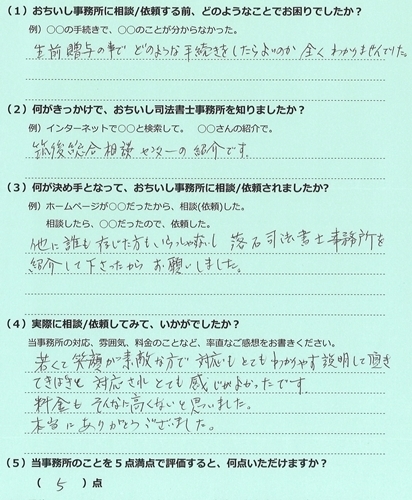 （１）おちいし事務所に相談/依頼する前、どのようなことでお困りでしたか？
例）○○の手続きで、○○のことが分からなかった。
生前贈与の事で どのような手続きをしたらよいのか 全くわかりませんでした。
（２）何がきっかけで、おちいし司法書士事務所を知りましたか？
例）インターネットで○○と検索して。　○○さんの紹介で。
筑後総合相談センターの紹介です。
（３）何が決め手となって、おちいし事務所に相談/依頼されましたか？
例）ホームページが○○だったから、相談(依頼)した。
相談したら、○○だったので、依頼した。
他に誰も存じた方もいらっしゃないし 落石司法書士事務所を
紹介して下さったから お願いしました。
（４）実際に相談/依頼してみて、いかがでしたか？
当事務所の対応、雰囲気、料金のことなど、率直なご感想をお書きください。
若くて笑顔が素敵な方で 対応もとてもわかりやす説明して頂き
てきぱきと 対応され とても 感じがよかったです
料金も そんなに高くないと思いました。
本当にありがとうございました。
（５）当事務所のことを５点満点で評価すると、何点いただけますか？
（　5　）点